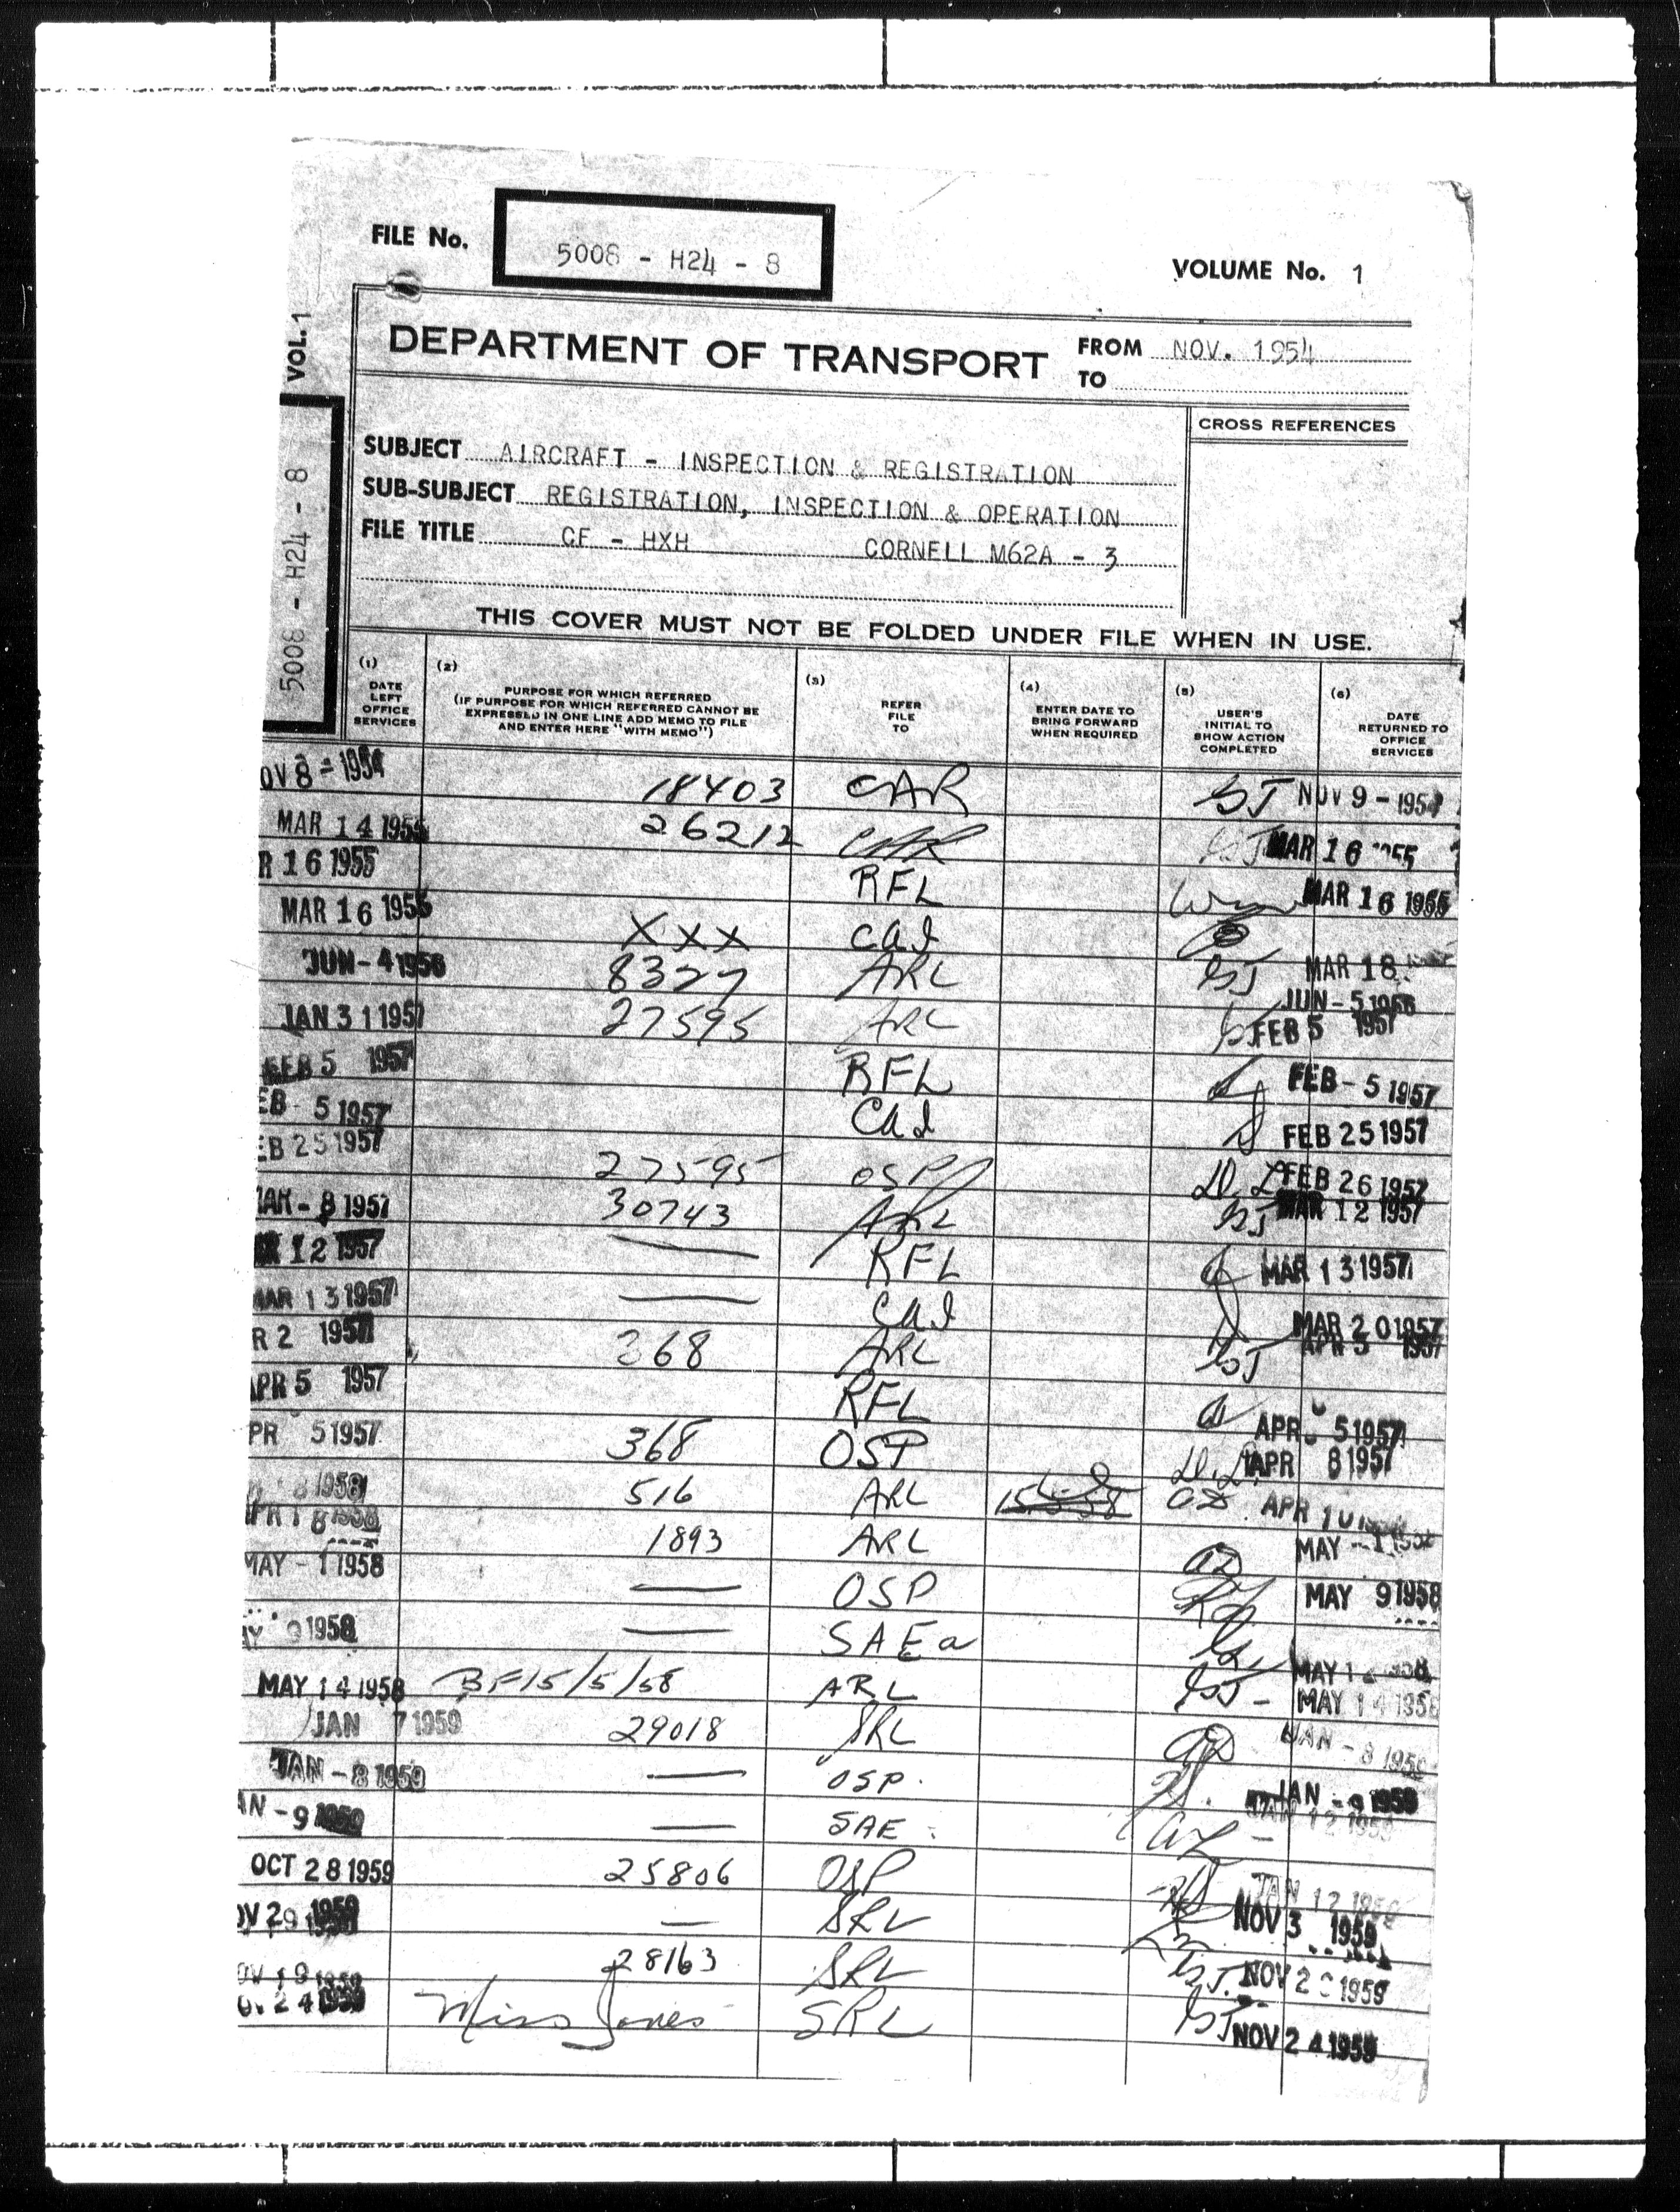 FILE No. 5008 - H24 - 8
VOLUME No. 1
VOL. 1
5008 - H24 - 8
DEPARTMENT OF TRANSPORT
FROM NOV. 1954
TO
CROSS REFERENCES
SUBJECT AIRCRAFT - INSPECTION & REGISTRATION
SUB-SUBJECT REGISTRATION, INSPECTION & OPERATION
FILE TITLE CF - HXH CORNELL M62A - 3
THIS COVER MUST NOT BE FOLDED UNDER FILE WHEN IN USE.
(1) DATE LEFT OFFICE SERVICES
(2) PURPOSE FOR WHICH REFERRED (IF PURPOSE FOR WHICH REFERRED CANNOT BE EXPRESSED IN ONE LINE ADD MEMO TO FILE AND ENTER HERE "WITH MEMO")
(3) REFER FILE TO
(4) ENTER DATE TO BRING FORWARD WHEN REQUIRED
(5) USER'S INITIAL TO SHOW ACTION COMPLETED
(6) DATE RETURNED TO OFFICE SERVICES
OV 8 - 1954 18403 CAR GJ NOV 9 - 1954
MAR 14 1955 26212 CAR GJ MAR 16 1955
R 16 1955 RFL MAR 16 1955
MAR 16 1955 XXX CAI MAR 18
JUN - 4 1956 8327 ARL GJ JUN - 5 1956
JAN 31 1957 27595 ARL GJ FEB 5 1957
FEB 5 1957 RFL FEB - 5 1957
EB - 5 1957 CAI FEB 25 1957
EB 25 1957 27595 OSP FEB 26 1957
MAR - 8 1957 30743 ARL GJ MAR 12 1957
12 1957 — RFL MAR 13 1957
MAR 13 1957 — CAI MAR 20 1957
R 2 1957 368 ARL GJ APR 5 1957
APR 5 1957 RFL APR 5 1957
PR 5 1957 368 OSP APR 8 1957
8 1958 516 ARL APR 10
APR 18 1958 1893 ARL MAY - 1 1958
MAY - 1 1958 — OSP MAY 9 1958
9 1958 — SAEa MAY 1
MAY 14 1958 BF 15/5/58 ARL GJ - MAY 14 1958
JAN 7 1959 29018 SRL JAN - 8 1959
JAN - 8 1959 — OSP. JAN - 9 1959
AN - 9 1959 — SAE JAN 12 1959
OCT 28 1959 25806 OSP JAN 12 1959
OV 2 1959 — SRL NOV 3 1959
OV 19 1959 28163 SRL GJ. NOV 2 1959
OV 24 1959 Miss Jones SRL GJ NOV 24 1959